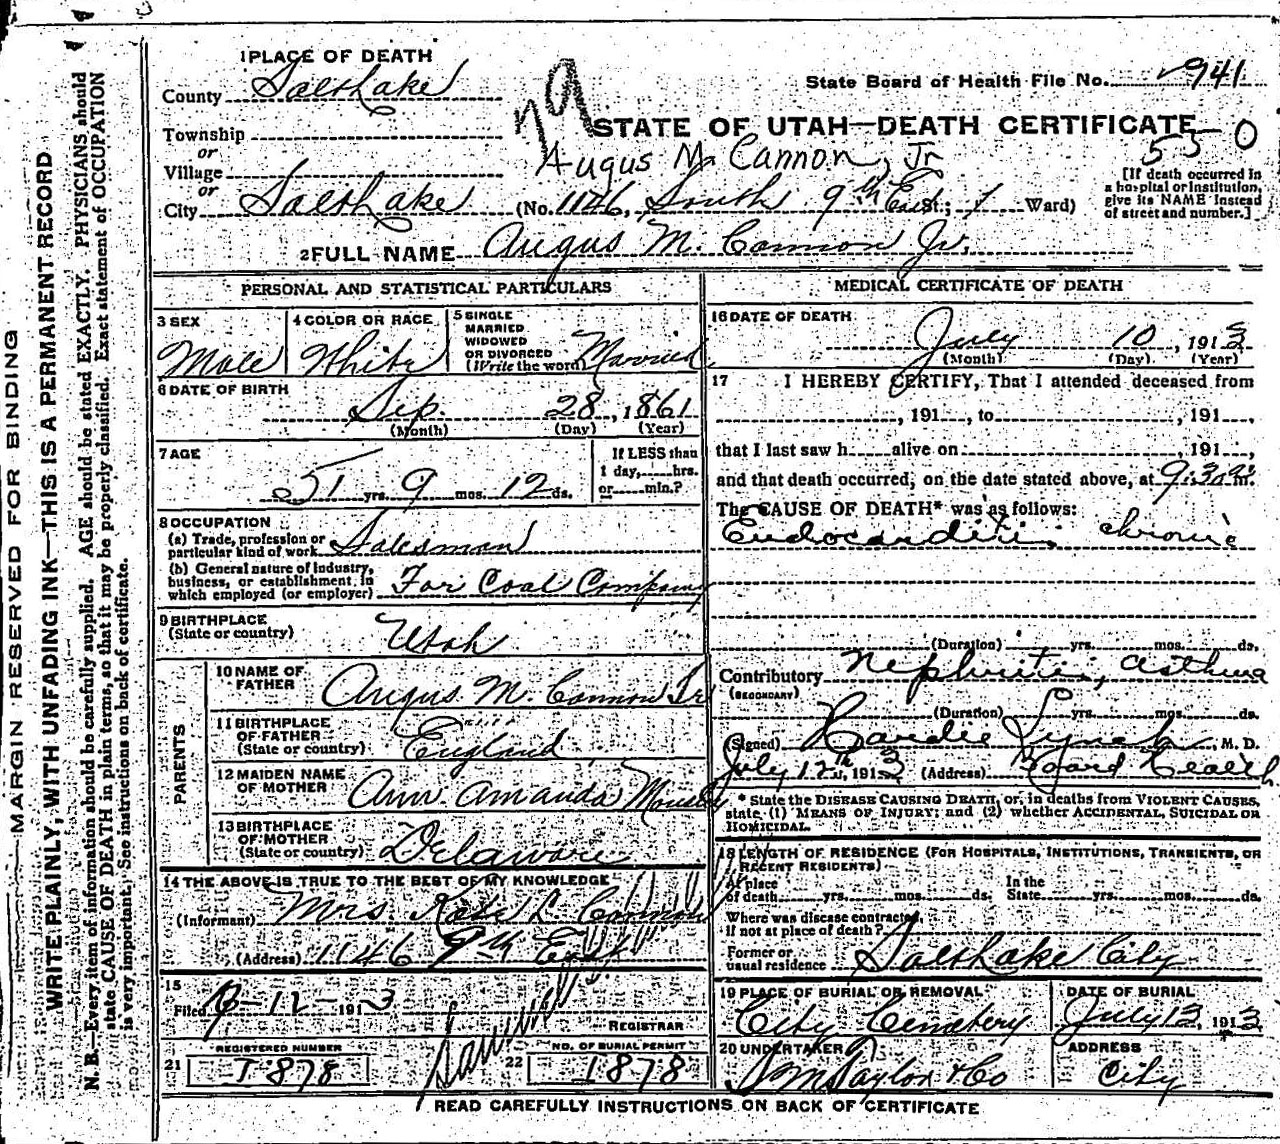 1 PLACE OF DEATH
County Salt Lake
Township
or
Village
or
City Salt Lake (No. 1146, South 9th East St.; 1 Ward)
State Board of Health File No. 941
79
STATE OF UTAH—DEATH CERTIFICATE
530
Angus M Cannon, Jr
[If death occurred in
a hospital or institution,
give its NAME instead
of street and number.]
2 FULL NAME Angus M. Cannon Jr.
PERSONAL AND STATISTICAL PARTICULARS
3 SEX
Male
4 COLOR OR RACE
White
5 SINGLE
MARRIED
WIDOWED
OR DIVORCED
(Write the word) Married
6 DATE OF BIRTH
Sep. 28, 1861
(Month) (Day) (Year)
7 AGE
51 yrs. 9 mos. 12 ds.
If LESS than
1 day, hrs.
or min.?
8 OCCUPATION
(a) Trade, profession or
particular kind of work Salesman
(b) General nature of industry,
business, or establishment in
which employed (or employer) For Coal Company
9 BIRTHPLACE
(State or country) Utah
PARENTS
10 NAME OF
FATHER Angus M. Cannon Sr
11 BIRTHPLACE
OF FATHER
(State or country) England
12 MAIDEN NAME
OF MOTHER Ann Amanda Mousley
13 BIRTHPLACE
OF MOTHER
(State or country) Delaware
14 THE ABOVE IS TRUE TO THE BEST OF MY KNOWLEDGE
(Informant) Mrs. Kate L. Cannon
(Address) 1146 9th East
15
Filed 12-1913
REGISTRAR
21 REGISTERED NUMBER
I 878
22 NO. OF BURIAL PERMIT
1878
MEDICAL CERTIFICATE OF DEATH
16 DATE OF DEATH
July 10, 1913
(Month) (Day) (Year)
17 I HEREBY CERTIFY, That I attended deceased from
, 191 , to , 191 ,
that I last saw h alive on , 191 ,
and that death occurred, on the date stated above, at 9:30 a. m.
The CAUSE OF DEATH* was as follows:
Endocarditis chronic
(Duration) yrs. mos. ds.
Contributory Nephritis, asthma
(SECONDARY)
(Duration) yrs. mos. ds.
(Signed) Hardie Lynch, M. D.
July 12th, 1913 (Address) Board Health
* State the DISEASE CAUSING DEATH, or, in deaths from VIOLENT CAUSES,
state (1) MEANS OF INJURY; and (2) whether ACCIDENTAL, SUICIDAL OR
HOMICIDAL.
18 LENGTH OF RESIDENCE (FOR HOSPITALS, INSTITUTIONS, TRANSIENTS, OR
RECENT RESIDENTS)
At place
of death yrs. mos. ds. In the
State yrs. mos. ds.
Where was disease contracted,
if not at place of death?
Former or
usual residence Salt Lake City
19 PLACE OF BURIAL OR REMOVAL
City Cemetery
DATE OF BURIAL
July 13, 1913
20 UNDERTAKER
S M Taylor & Co
ADDRESS
City
READ CAREFULLY INSTRUCTIONS ON BACK OF CERTIFICATE
MARGIN RESERVED FOR BINDING
WRITE PLAINLY, WITH UNFADING INK—THIS IS A PERMANENT RECORD
N. B.—Every item of information should be carefully supplied. AGE should be stated EXACTLY. PHYSICIANS should
state CAUSE OF DEATH in plain terms, so that it may be properly classified. Exact statement of OCCUPATION
is very important. See instructions on back of certificate.